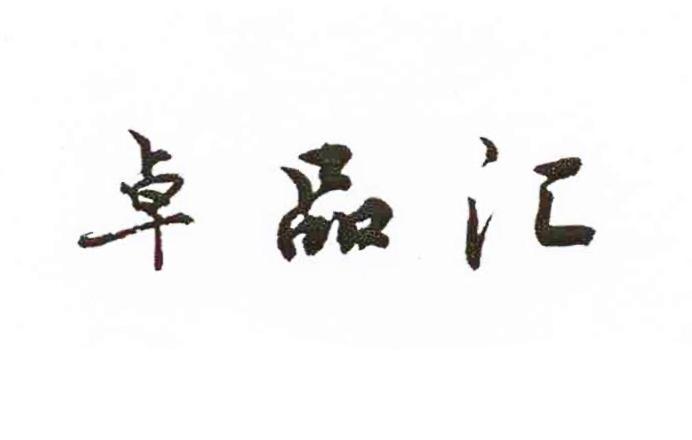 卓品汇